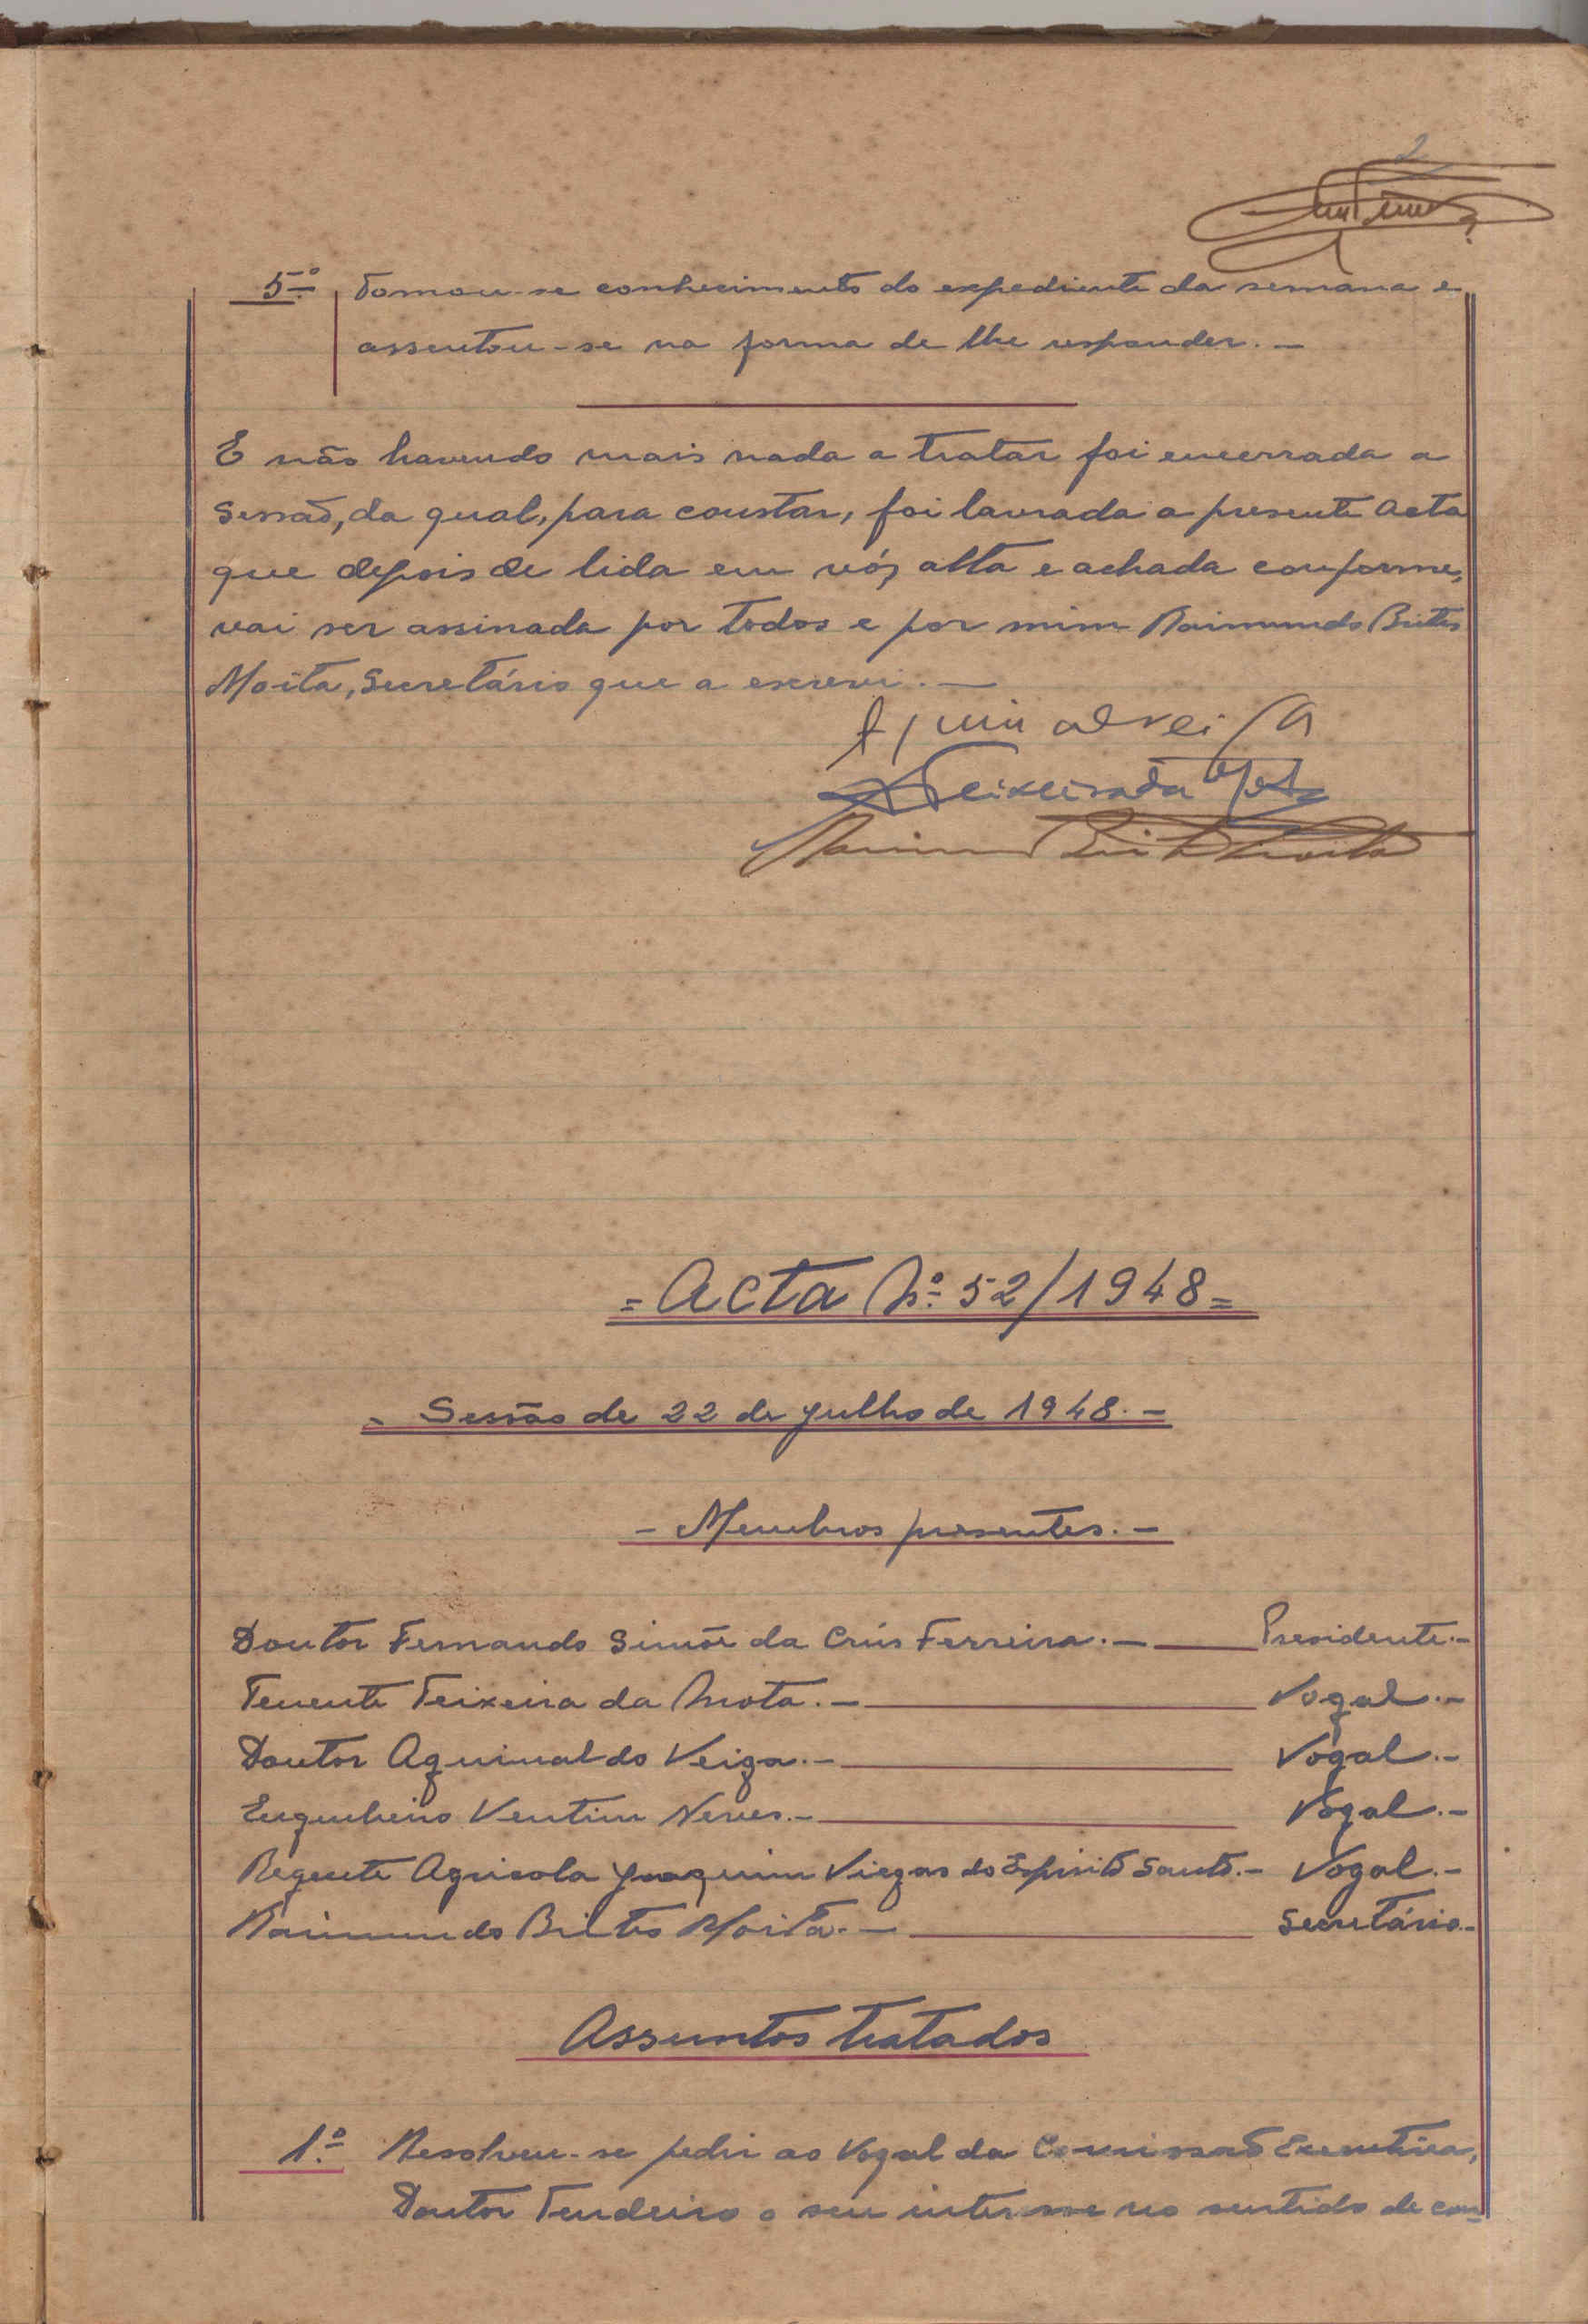 2
5º Tomou-se conhecimento do expediente da semana e
assentou-se na forma de lhe responder. —
E não havendo mais nada a tratar foi encerrada a
sessão, da qual, para constar, foi lavrada a presente acta
que depois de lida em vóz alta e achada conforme,
vai ser assinada por todos e por mim Raimundo Brites
Moita, Secretário que a escrevi. —
Teixeira da Mota
= Acta Nº 52/1948 =
- Sessão de 22 de Julho de 1948. -
- Membros presentes. -
Doutor Fernando Simões da Crús Ferreira. — Presidente. -
Tenente Teixeira da Mota. — Vogal. -
Doutor Aguinaldo Veiga. — Vogal. -
Engenheiro Ventim Neves. — Vogal. -
Regente Agricola Joaquim Viegas do Espirito Santo. - Vogal. -
Raimundo Brites Moita. — Secretário. -
Assuntos tratados
1º Resolveu-se pedir ao Vogal da Comissão Executiva,
Doutor Tendeiro o seu interesse no sentido de con-